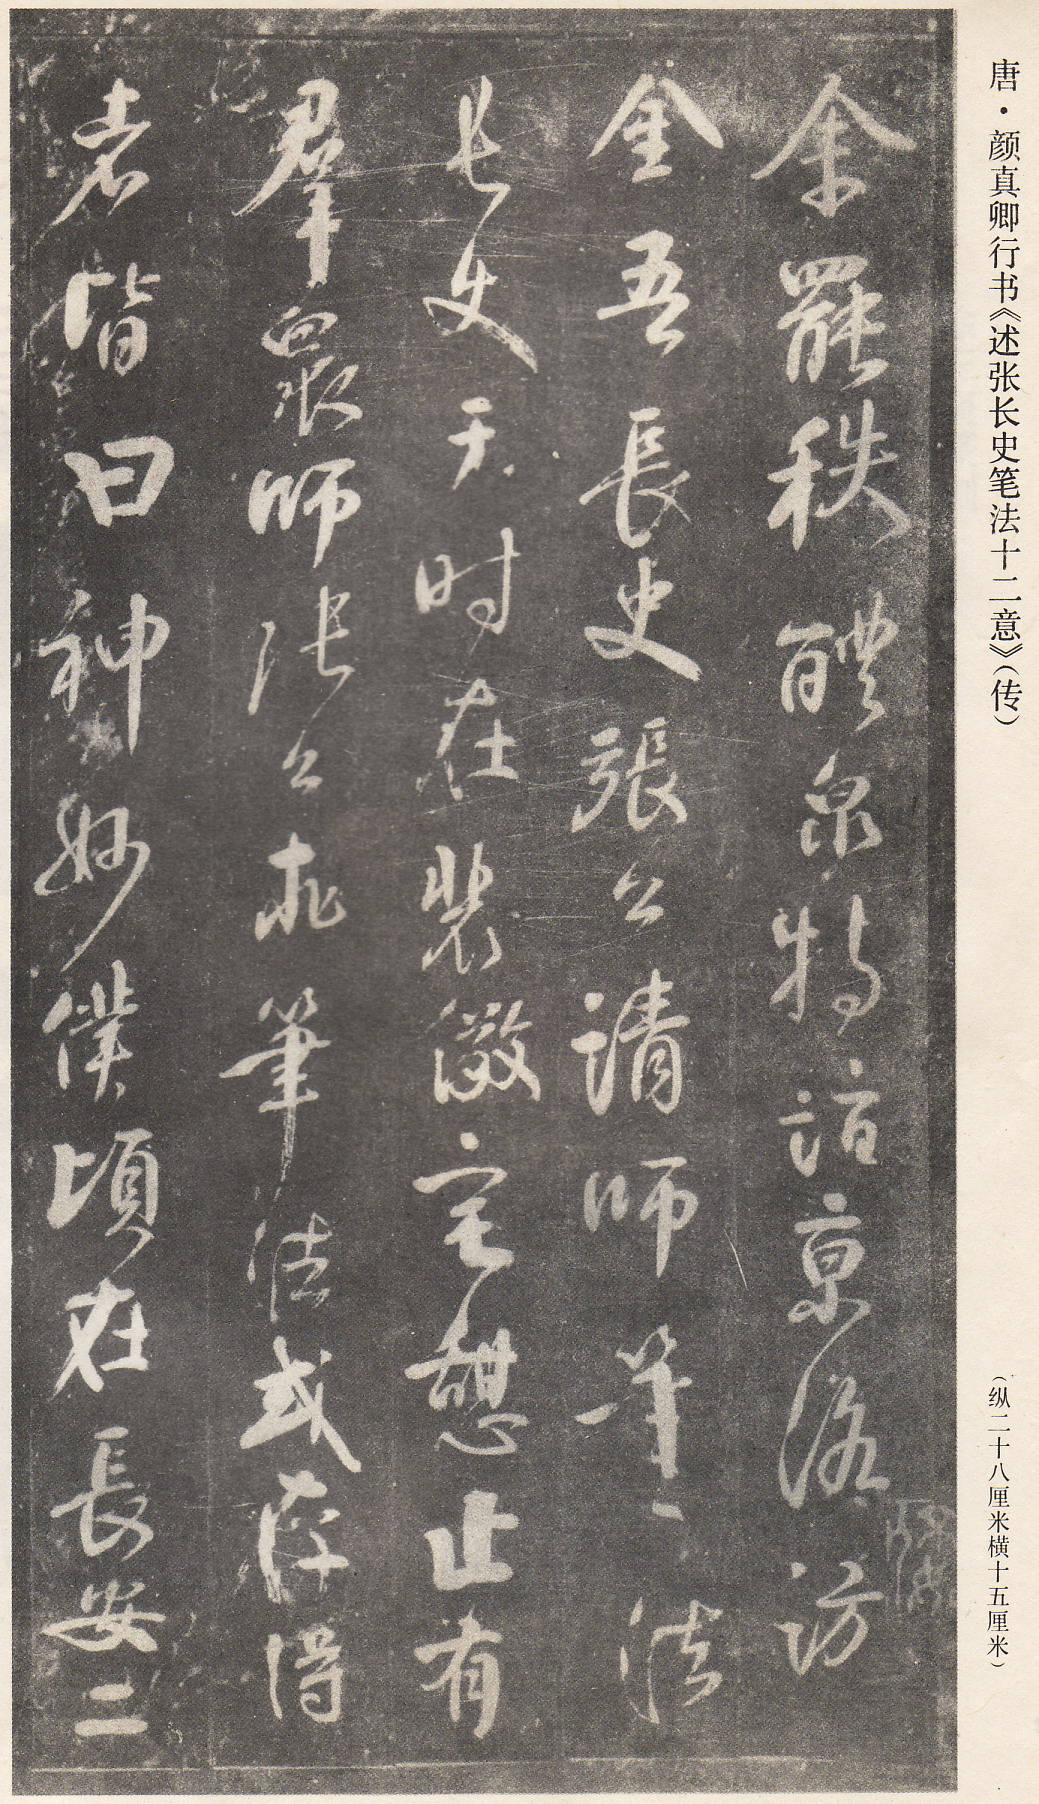 唐·颜真卿行书《述张长史笔法十二意》（传）
（纵二十八厘米横十五厘米）
余罷秩醴泉特詣京洛訪
金吾長史張公請師筆法
長史于時在裴儆宅憩止有
羣衆師張公求筆法或存得
者皆曰神妙僕頃在長安二